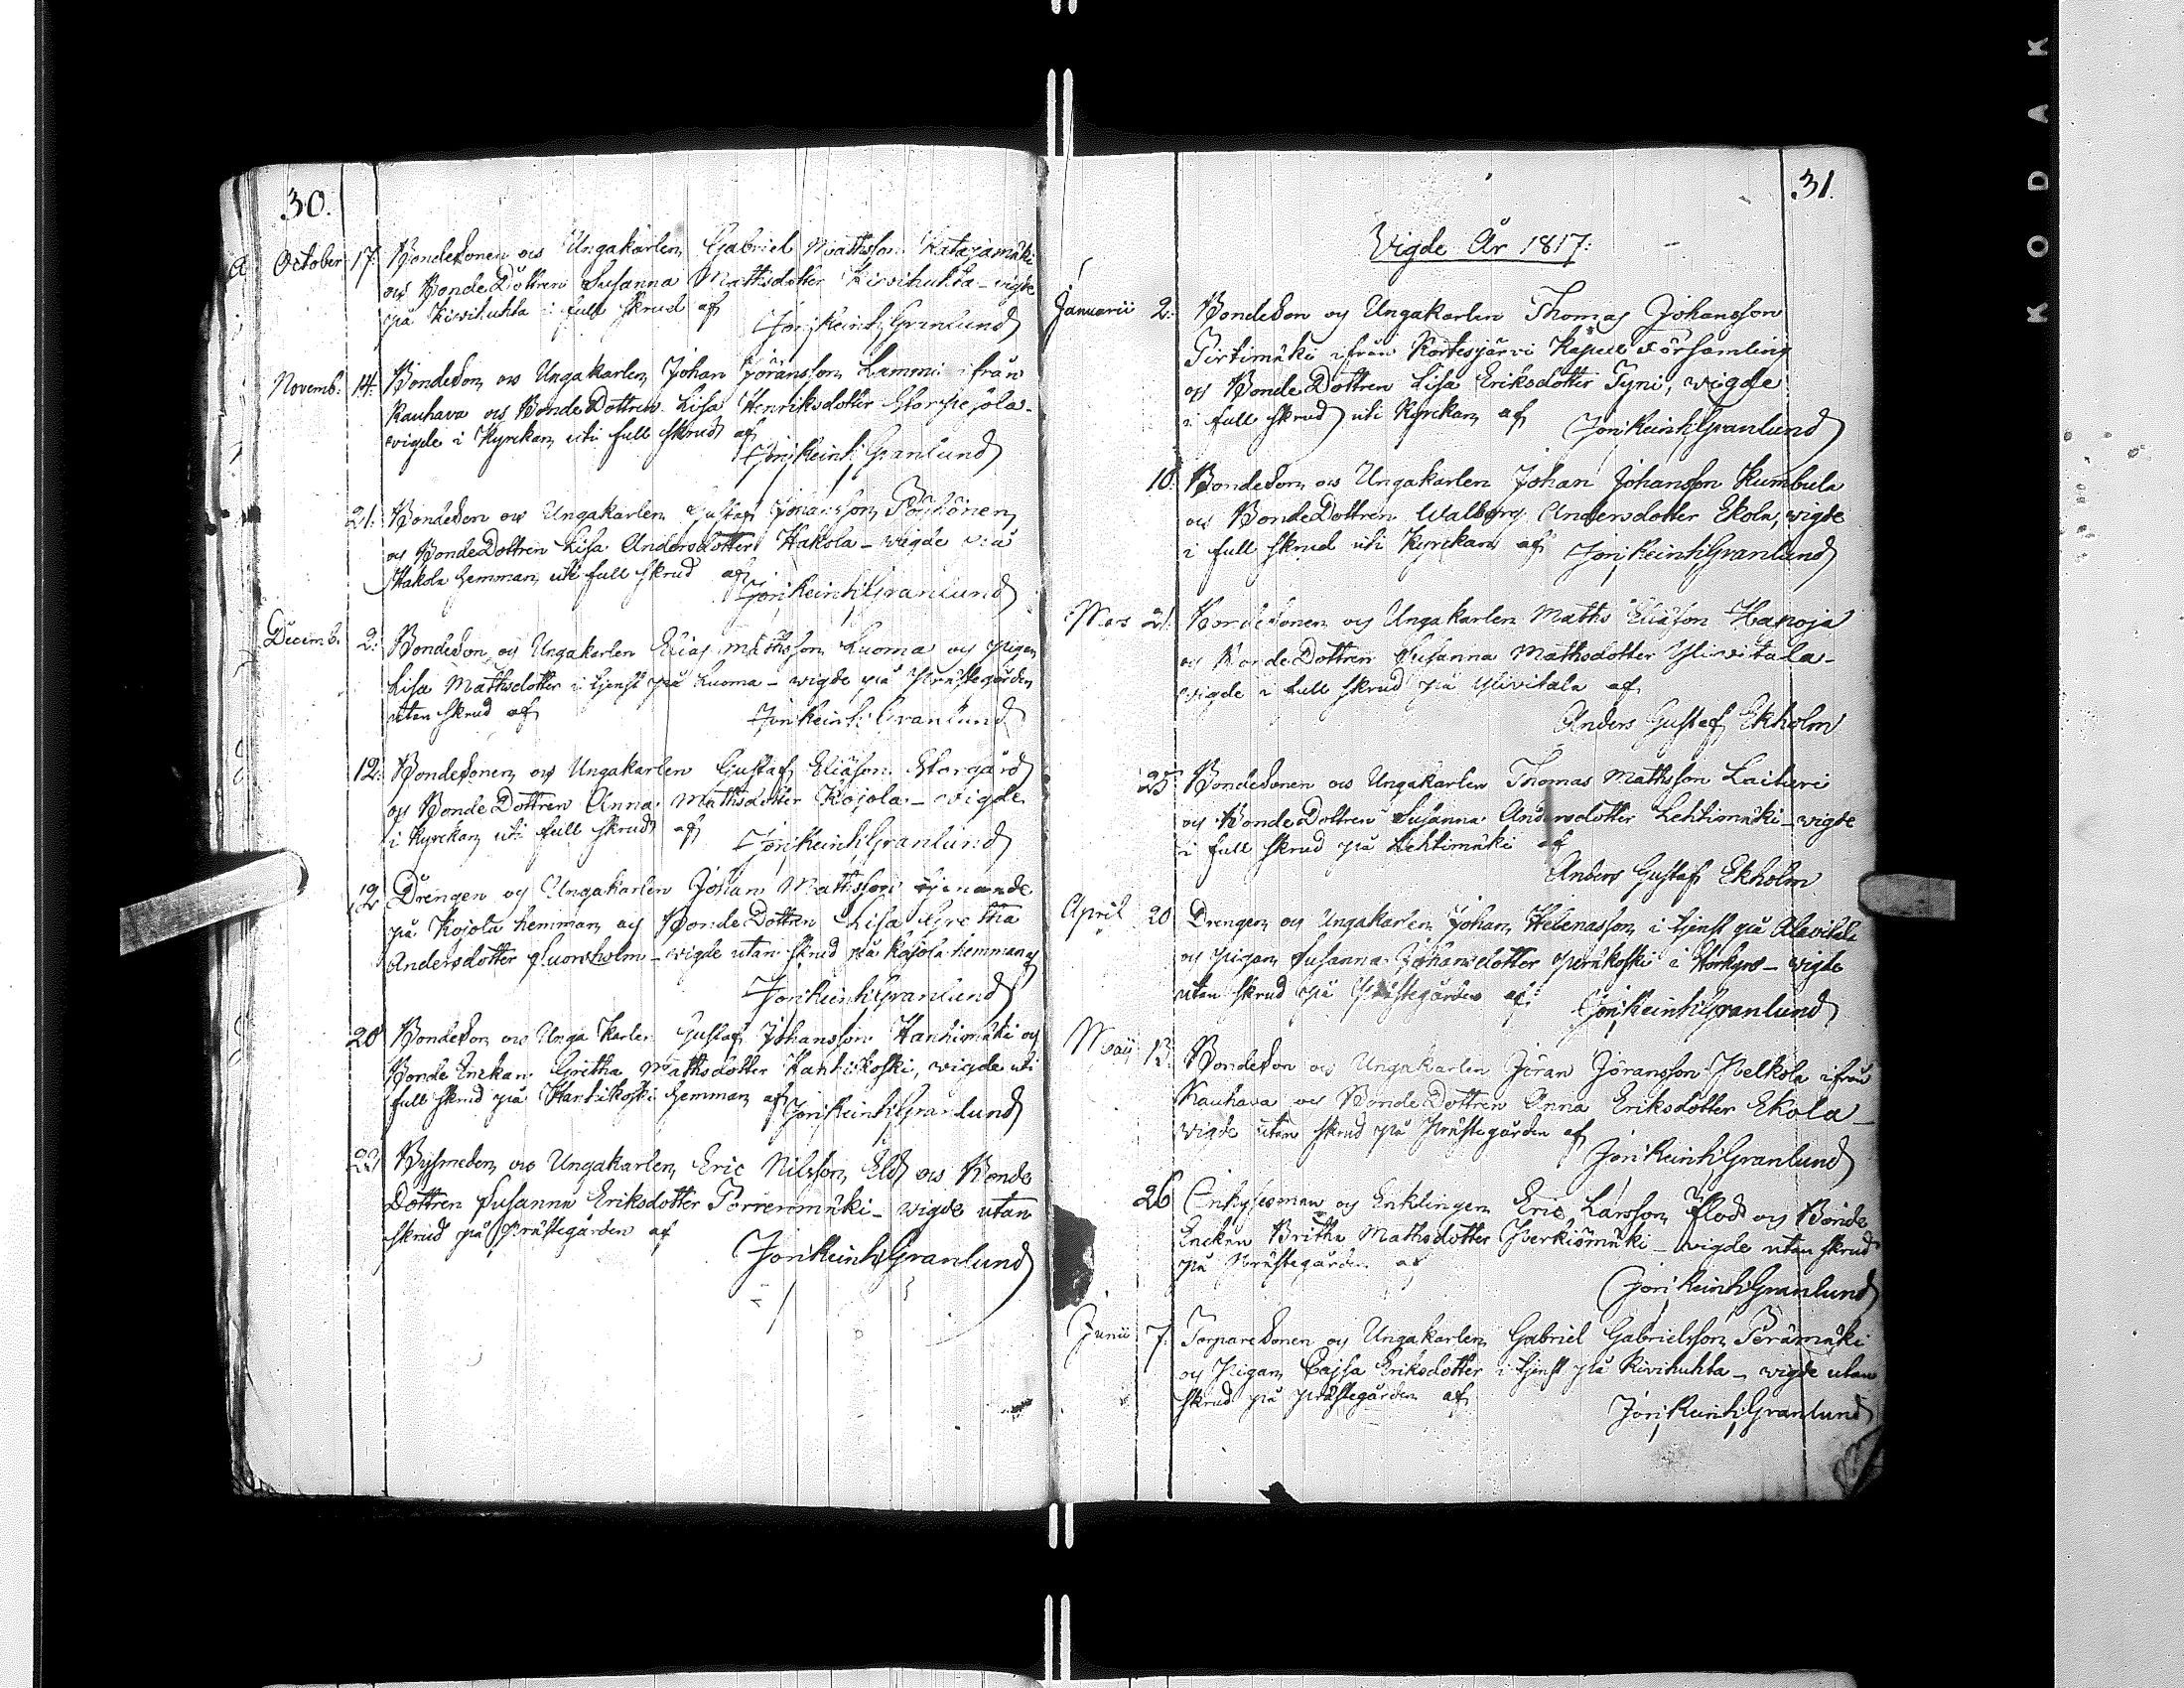 30.
October 17. BondeSonen och Ungakarlen Gabriel Mathsson Katajamäki
och BondeDottren Susanna Mathsdotter Kivihuhta - vigde
på Kivihuhta i full skrud af
Jöri Reinh: Granlund
Novemb: 14. BondeSon och Ungakarlen Johan Jöransson Lammi ifrån
Kauhava och BondeDottren Lisa Henriksdotter
vigde i Kyrckan uti full skrud af
Jöri Reinh: Granlund
21. BondeSon och Ungakarlen Gustaf Johansson
och BondeDottren Lisa Andersdotter Hakola - vigde på
Hakola hemman uti full skrud af
Jöri Reinh: Granlund
Decemb. 2. BondeSon och Ungakarlen Elias Mathsson Luoma och Pigan
Lisa Mathsdotter i tjenst på Luoma - vigde på Prästegården
utan skrud af
Jöri Reinh: Granlund
12. BondeSonen och Ungakarlen Gustaf Eliason Storgård
och BondeDottren Anna Mathsdotter Kojola - vigde
i Kyrckan uti full skrud af
Jöri Reinh: Granlund
12 Drengen och Ungakarlen Johan Mathsson tjenande
på Kojola hemman och BondeDottren Lisa Gretha
Andersdotter - vigde utan skrud på Kojola hemman af
Jöri Reinh: Granlund
20 BondeSon och Ungakarlen Gustaf Johansson Hanhimäki och
Bonde Enckan Gretha Mathsdotter Hanhikoski, vigde uti
full skrud på Hanhikoski hemman af
Jöri Reinh: Granlund
Bysmeden och Ungakarlen Eric Nilsson Eld och Bonde
Dottren Susanna Eriksdotter - vigde utan
skrud på Prästegården af
Jöri Reinh: Granlund
31.
Vigde År 1817:
Januarii 2. BondeSon och Ungakarlen Thomas Johansson
Pirtimäki ifrån Kortesjärvi Kapell Församling
och BondeDottren Lisa Eriksdotter Tyni, vigde
i full skrud uti Kyrckan af
Jöri Reinh: Granlund
10. BondeSon och Ungakarlen Johan Johansson Kumbula
och BondeDottren Walborg Andersdotter Ekola, vigde
i full skrud uti Kyrckan af
Jöri Reinh: Granlund
Mars 21. BondeSonen och Ungakarlen Maths Eliason Hanoja
och BondeDottren Susanna Mathsdotter Ylivitala -
vigde i full skrud på Ylivitala af
Anders Gustaf Ekholm
25 BondeSonen och Ungakarlen Thomas Mathsson Laiteri
och BondeDottren Susanna Andersdotter Lehtimäki - vigde
i full skrud på Lehtimäki af
Anders Gustaf Ekholm
April 20 Drengen och Ungakarlen Johan Helenasson i tjenst på Alavitala
och Pigan Susanna Johansdotter i Storkyro - vigde
utan skrud på Prästegården af
Jöri Reinh: Granlund
Maij 13. BondeSon och Ungakarlen Jöran Jöransson ifrån
Kauhava och BondeDottren Anna Eriksdotter Ekola -
vigde utan skrud på Prästegården af
Jöri Reinh: Granlund
26 och Enklingen Eric Larsson Flod och Bonde
Enckan Britha Mathsdotter - vigde utan skrud
på Prästegården af
Jöri Reinh: Granlund
Junii 7. TorpareSonen och Ungakarlen Gabriel Gabrielsson Perämäki
och Pigan Cajsa Eriksdotter i tjenst på Kivihuhta - vigde utan
skrud på Prästegården af
Jöri Reinh: Granlund
KODAK